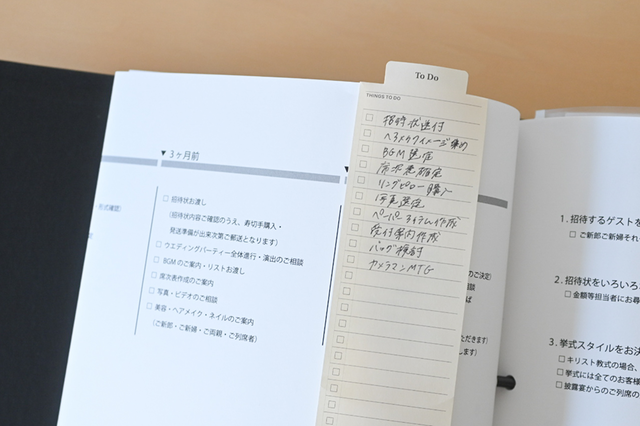 To Do
THINGS TO DO
招待状送付
ヘアメイクイメージ集め
BGM選定
席次表確定
リングピロー購入
写真選定
ペーパーアイテム作成
受付案内作成
バッグ検討
カメラマンMTG
形式確認）
▼3ヶ月前
□ 招待状お渡し
（招待状内容ご確認のうえ、寿切手購入・
発送準備が出来次第ご郵送となります）
□ ウエディングパーティー全体進行・演出のご相談
□ BGMのご案内・リストお渡し
□ 席次表作成のご案内
□ 写真・ビデオのご相談
□ 美容・ヘアメイク・ネイルのご案内
（ご新郎・ご新婦・ご両親・ご列席者）
のご決定）
ただきます）
します）
1. 招待するゲストを
□ ご新郎ご新婦それ
2. 招待状をいろいろ
□ 金額等担当者にお尋
3. 挙式スタイルをお決
□ キリスト教式の場合、
□ 挙式には全てのお客様
□ 披露宴からのご列席の